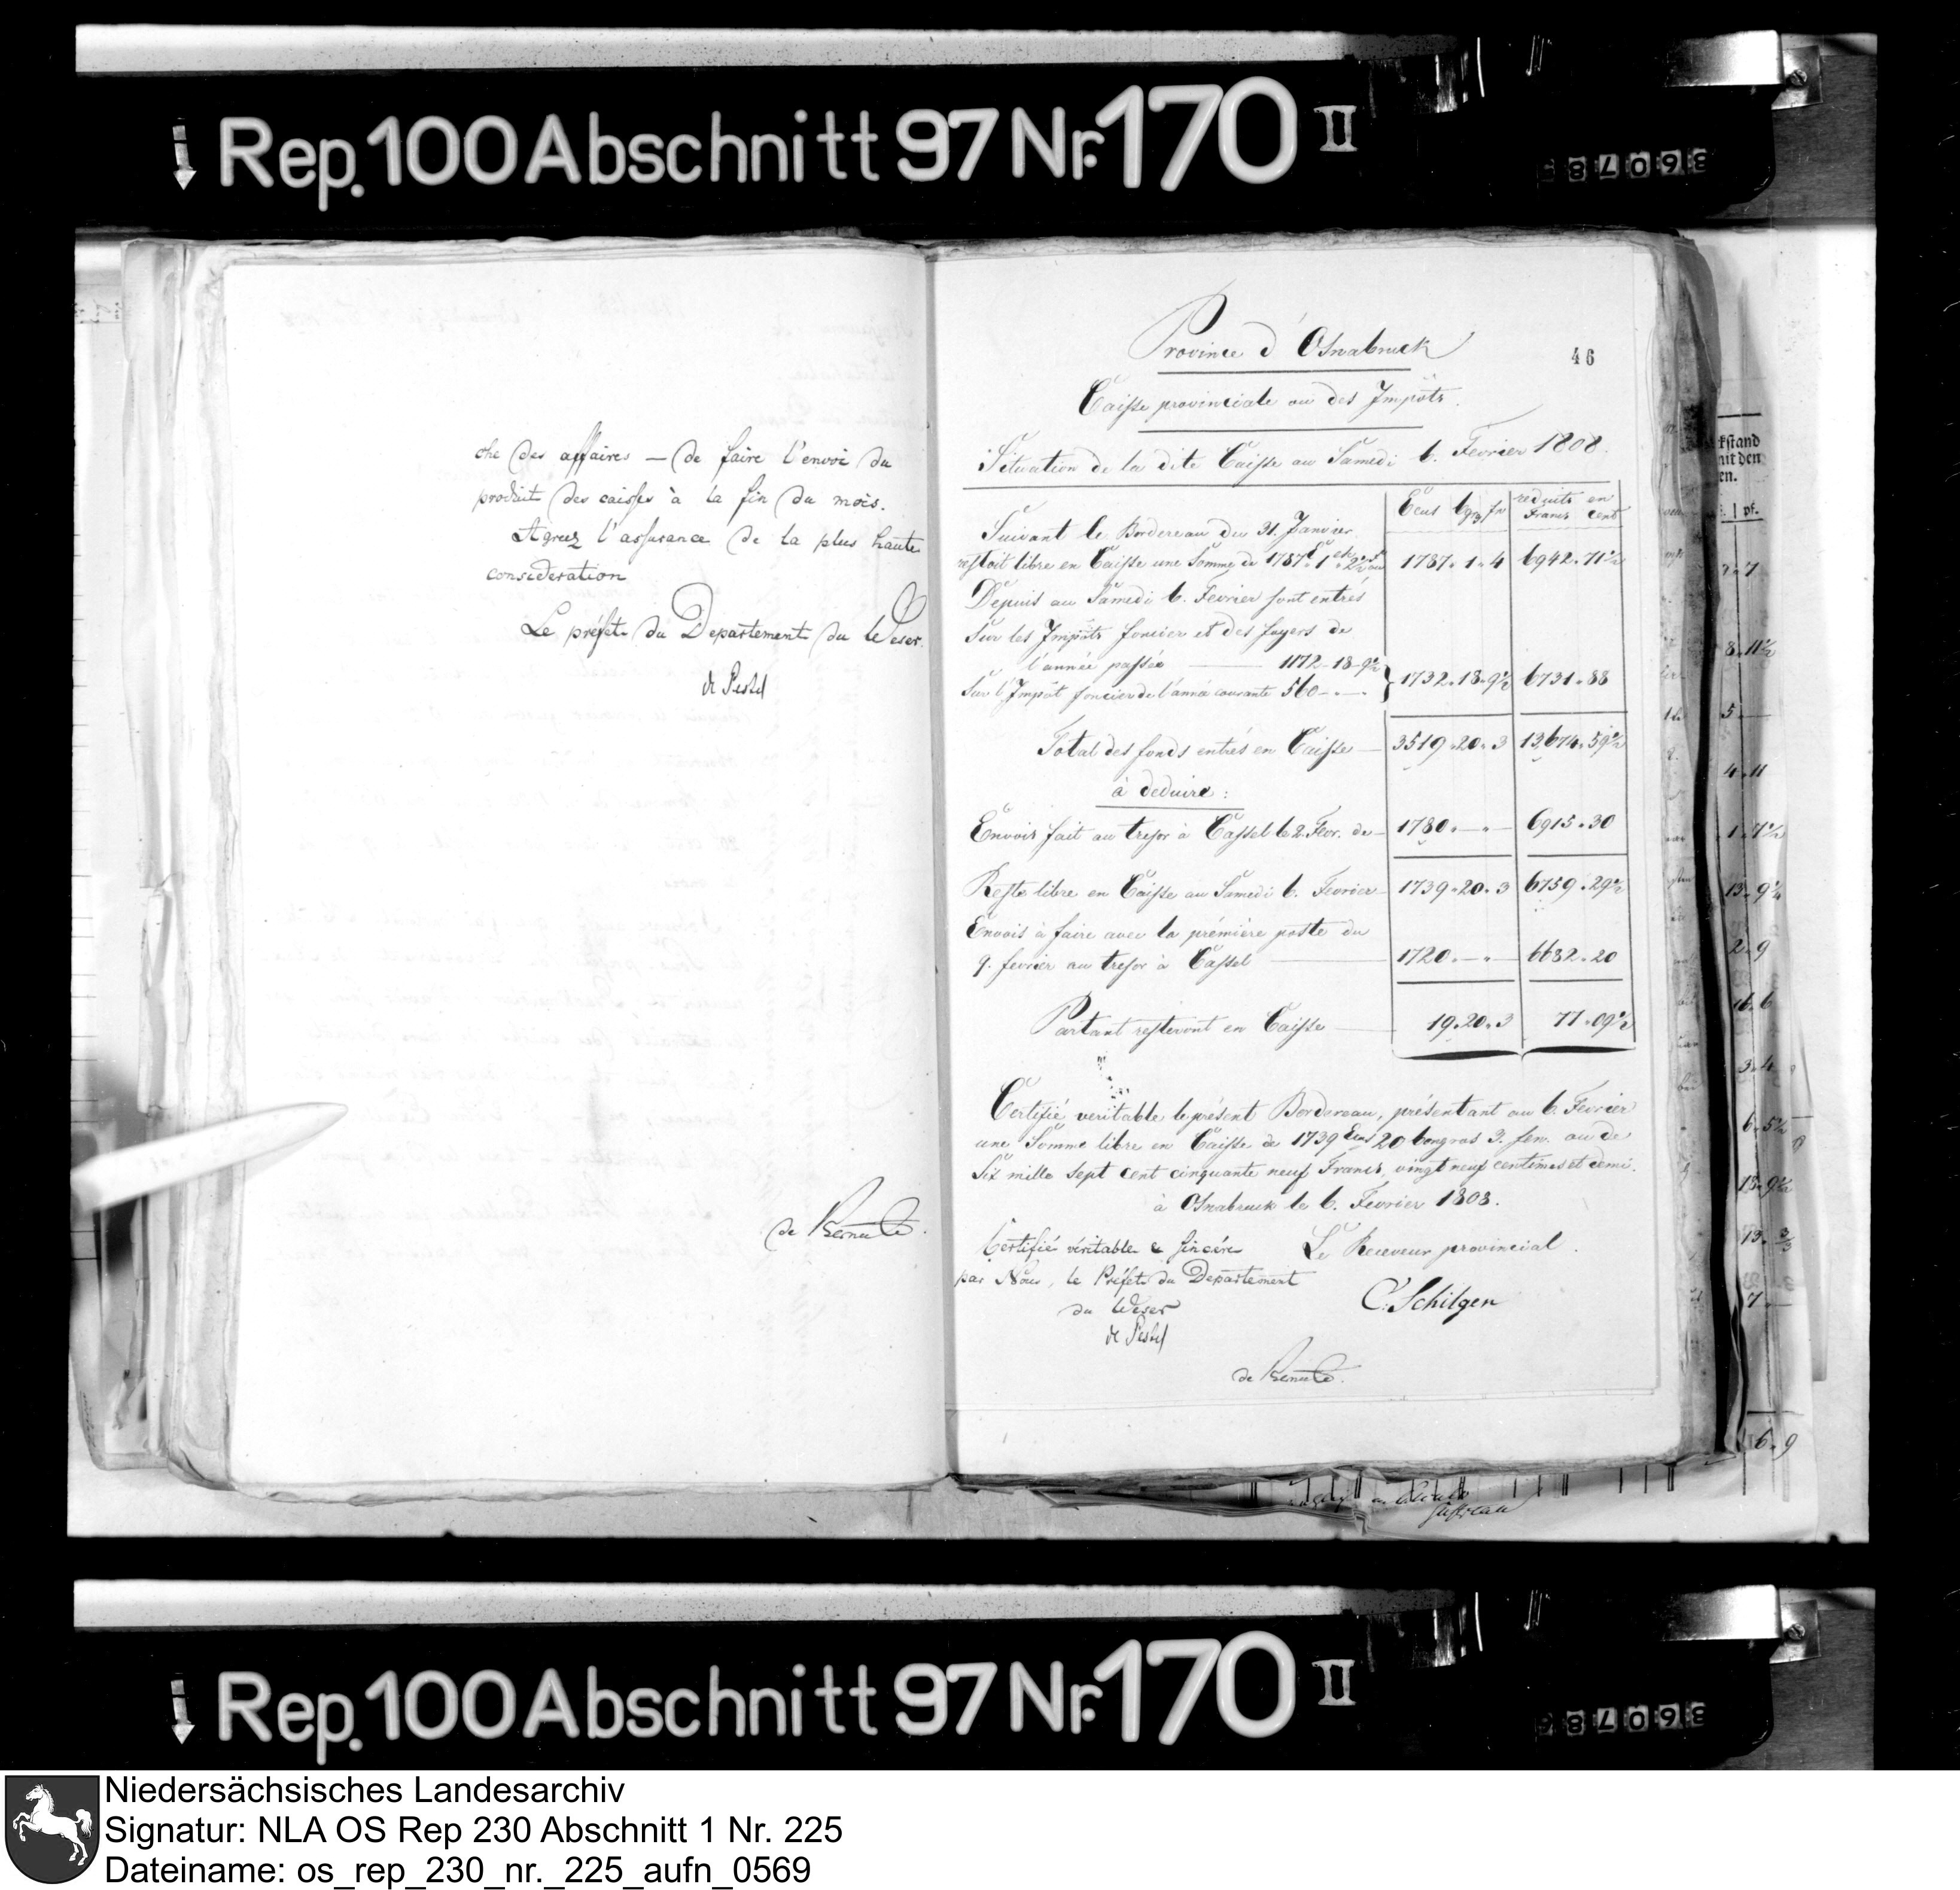 Rep. 100 Abschnitt 97 Nr. 170 II
che des affaires — de faire l'envoi du
produit des caisses à la fin du mois.
Agreez l'assurance de la plus haute
consideration
Le préfet du Departement du Weser.
de Pestel
Province d'Osnabruck
46
Caisse provinciale ou des Impôts.
Situation de la dite Caisse au Samedi 6. Fevrier 1808.
Ecus bgr fn reduits en Francs cent
Suivant le Bordereau du 31. Janvier
restoit libre en Caisse une Somme de 1787 1 1787 " 1 " 4 6942 " 71½
Depuis au Samedi 6. Fevrier sont entrés
Sur les Impôts foncier et des foyers de
l'année passée — 1172 - 18 - 9½
Sur l'Impôt foncier de l'année courante 560 — " — } 1732 " 18 " 9½ 6731 " 88
Total des fonds entrés en Caisse — 3519 " 20 " 3 13,674 " 59½
à deduire :
Envois fait au tresor à Cassel le 2. Fevr. de — 1780 " — " — 6915 " 30
Reste libre en Caisse au Samedi 6. Fevrier — 1739 " 20 " 3 6759 " 29½
Envois à faire avec la prémière poste du
9. fevrier au tresor à Cassel — 1720 " — " — 6682 " 20
Partant resteront en Caisse — 19 " 20 " 3 77 " 09½
Certifié veritable le présent Bordereau, présentant au 6. Fevrier
une Somme libre en Caisse de 1739 Ecus 20 bongros 3. fen. ou de
Six mille Sept cent cinquante neuf Francs, vingt neuf centimes et demi.
à Osnabruck le 6. Fevrier 1808.
Certifié véritable & sincére
par Nous, le Préfet du Departement
du Weser
de Pestel
Le Receveur provincial.
C. Schilgen
Rep. 100 Abschnitt 97 Nr. 170 II
Niedersächsisches Landesarchiv
Signatur: NLA OS Rep 230 Abschnitt 1 Nr. 225
Dateiname: os_rep_230_nr._225_aufn_0569